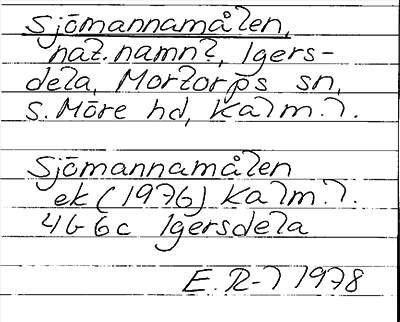 Sjömannamålen,
nat.namn?, Igers-
dela, Mortorps sn,
S. Möre hd, Kalm.l.
Sjömannamålen
ek (1976) Kalm.l.
4G 6c Igersdela
E.R-l 1978